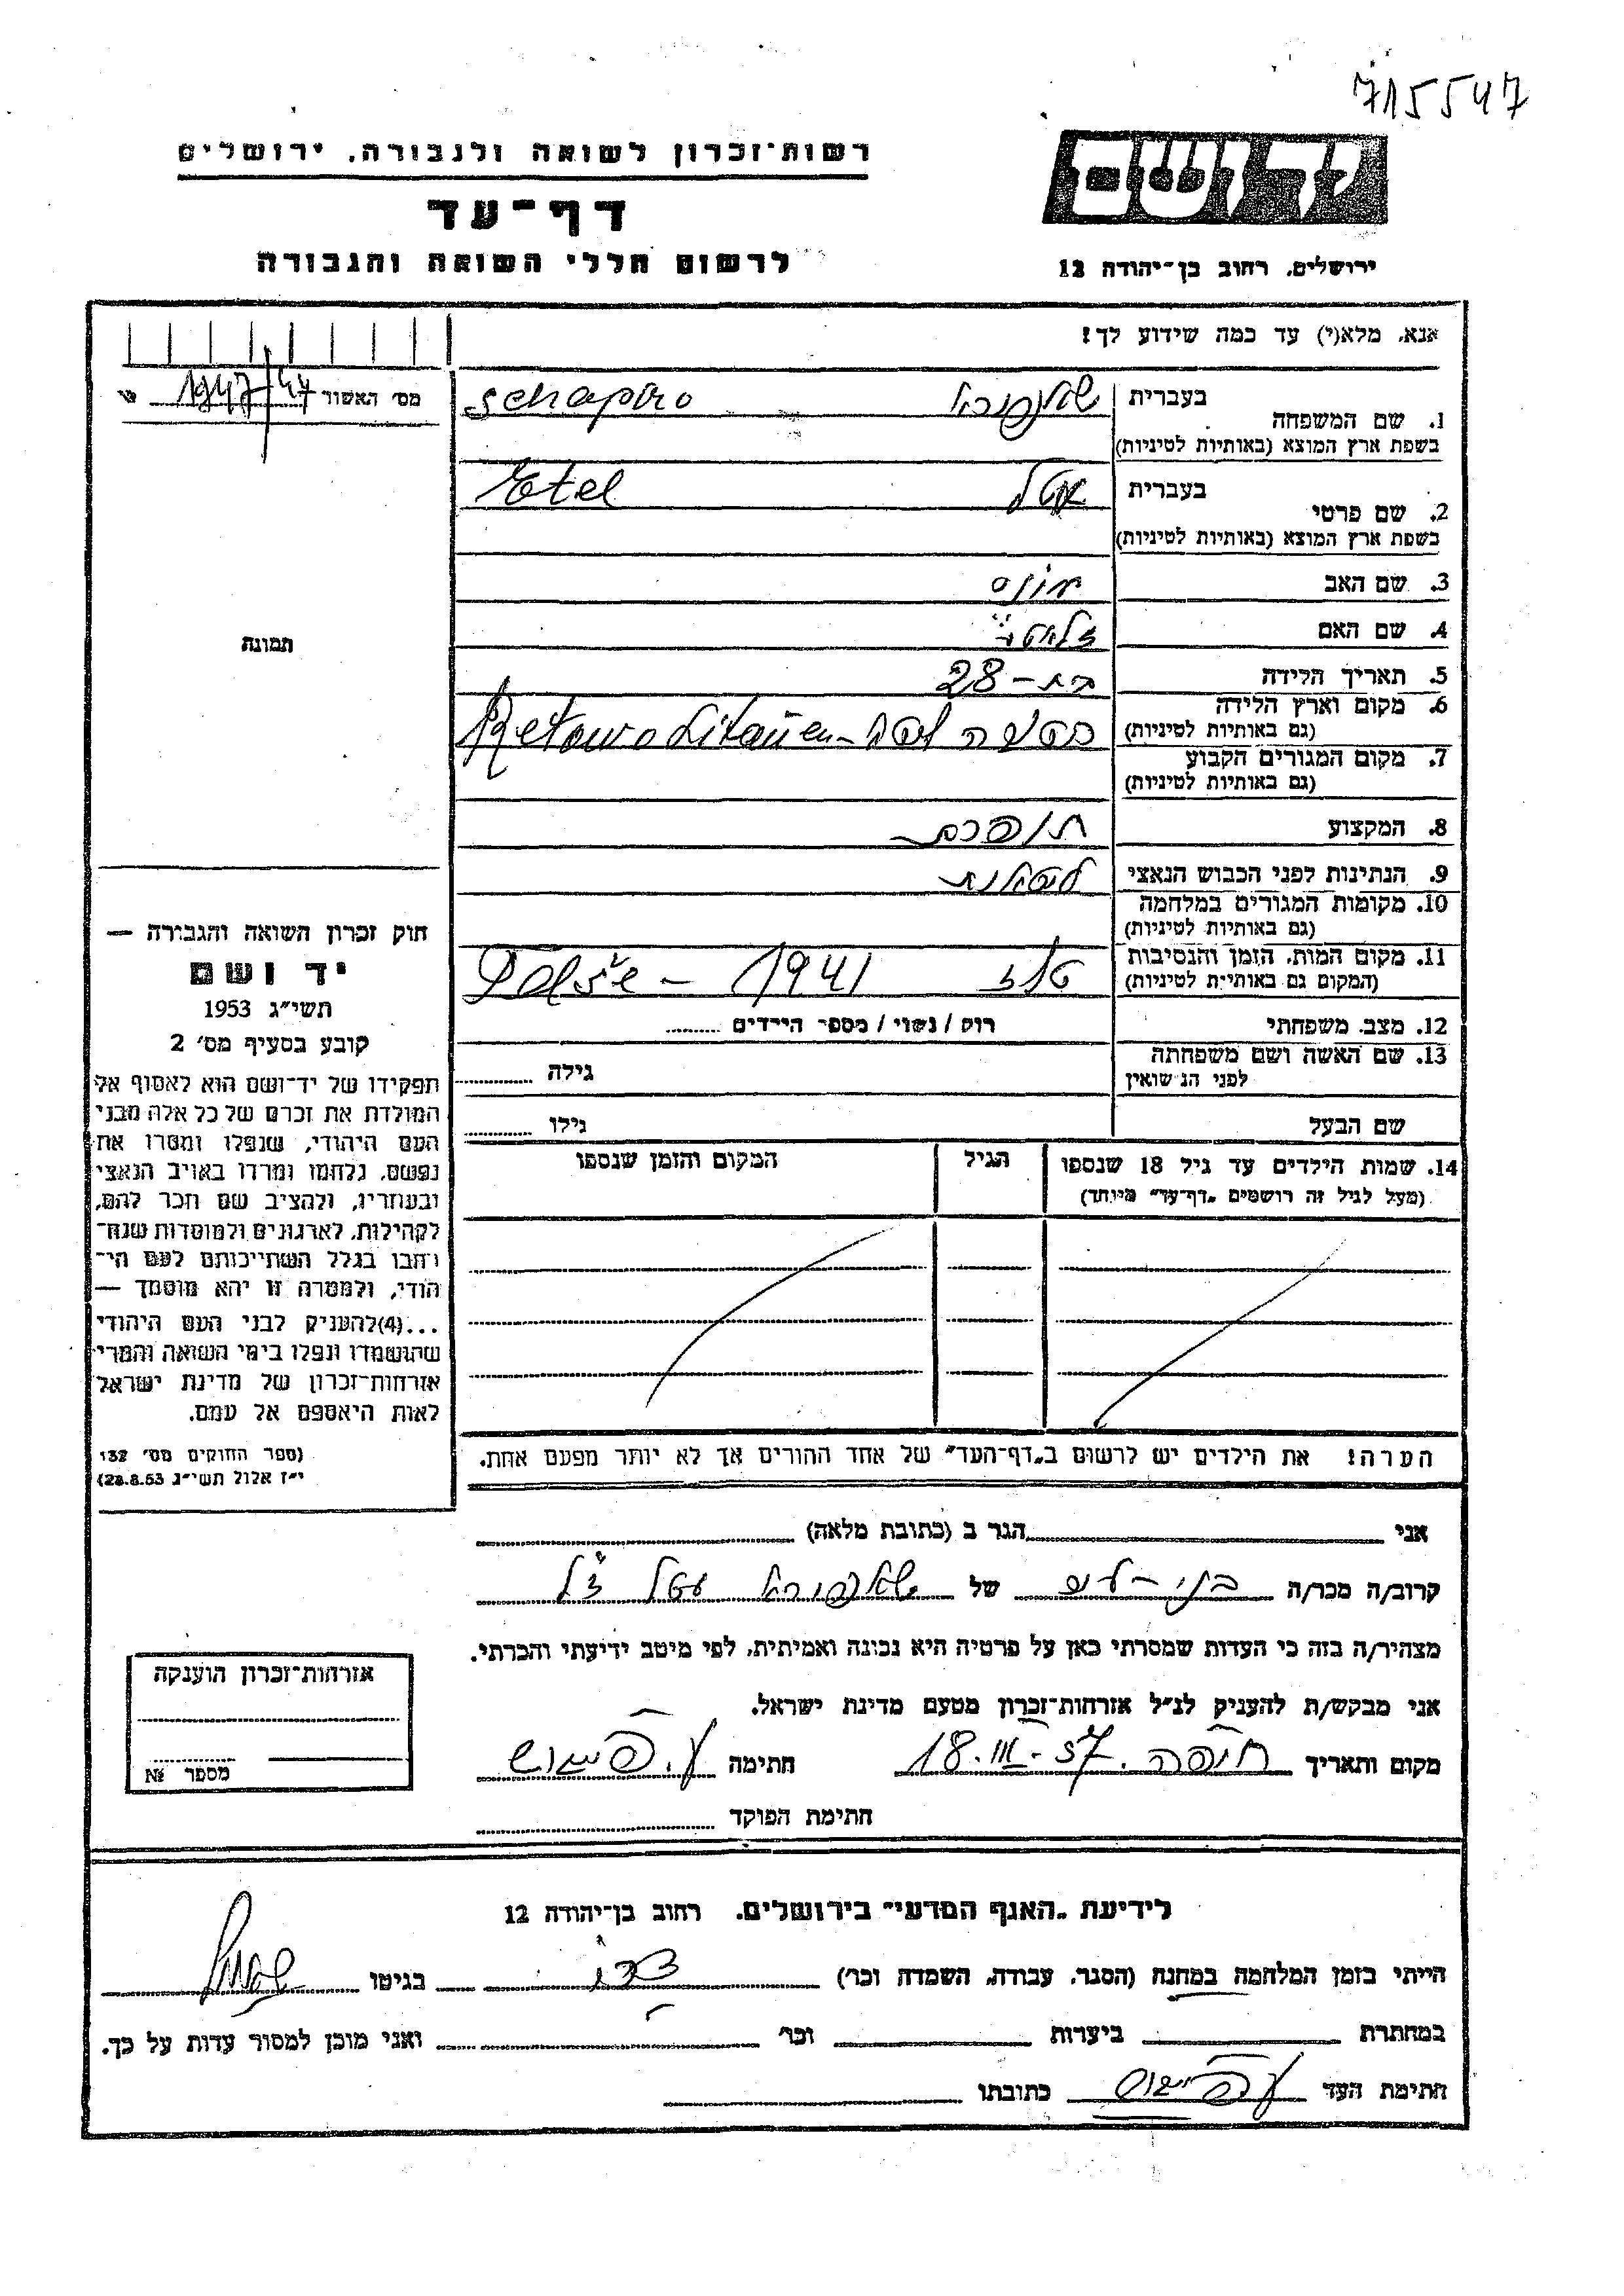 715547
רשות־זכרון לשואה ולגבורה, ירושלים
דף־עד
לרשום חללי השואה והגבורה
יד ושם
ירושלים, רחוב בן־יהודה 12
אנא, מלא(י) עד כמה שידוע לך!
מס׳ האשור 1947/44
1. שם המשפחה בעברית שאפירא Schapiro
בשפת ארץ המוצא (באותיות לטיניות)
2. שם פרטי בעברית אטל Etel
בשפת ארץ המוצא (באותיות לטיניות)
3. שם האב
4. שם האם זלאטע
5. תאריך הלידה בת – 28
6. מקום וארץ הלידה Retowo Litauen
(גם באותיות לטיניות)
7. מקום המגורים הקבוע
(גם באותיות לטיניות)
8. המקצוע תופרת
9. הנתינות לפני הכבוש הנאצי ליטאית
10. מקומות המגורים במלחמה
(גם באותיות לטיניות)
11. מקום המות, הזמן והנסיבות טלז Telše – 1941
(המקום גם באותיות לטיניות)
12. מצב משפחתי רוק / נשוי / מספר הילדים
13. שם האשה ושם משפחתה גילה
לפני הנשואין
שם הבעל גילו
14. שמות הילדים עד גיל 18 שנספו הגיל המקום והזמן שנספו
(מעל לגיל זה רושמים „דף־עד״ מיוחד)
הערה! את הילדים יש לרשום ב„דף־העד״ של אחד ההורים אך לא יותר מפעם אחת.
תמונה
חוק זכרון השואה והגבורה —
יד ושם
תשי״ג 1953
קובע בסעיף מס׳ 2
תפקידו של יד־ושם הוא לאסוף אל
המולדת את זכרם של כל אלה מבני
העם היהודי, שנפלו ומסרו את
נפשם, נלחמו ומרדו באויב הנאצי
ובעוזריו, ולהציב שם וזכר להם,
לקהילות, לארגונים ולמוסדות שנח־
רבו בגלל השתייכותם לעם הי־
הודי, ולמטרה זו יהא מוסמך —
...(4) להעניק לבני העם היהודי
שהושמדו ונפלו בימי השואה והמרי
אזרחות־זכרון של מדינת ישראל
לאות היאספם אל עמם.
(ספר החוקים מס׳ 132
י״ז אלול תשי״ג 28.8.53)
אני הגר ב (כתובת מלאה)
קרוב/ה מכר/ה בני-דוד של שאפירא אטל ז״ל
מצהיר/ה בזה כי העדות שמסרתי כאן על פרטיה היא נכונה ואמיתית, לפי מיטב ידיעתי והכרתי.
אני מבקש/ת להעניק לנ״ל אזרחות־זכרון מטעם מדינת ישראל.
מקום ותאריך חיפה. 18.III-57 חתימה
חתימת הפוקד
אזרחות־זכרון הוענקה
מספר №
לידיעת „האגף המדעי״ בירושלים, רחוב בן־יהודה 12
הייתי בזמן המלחמה במחנה (הסגר, עבודה, השמדה וכו׳) בגיטו
במחתרת ביערות וכו׳ ואני מוכן למסור עדות על כך.
חתימת העד כתובתו